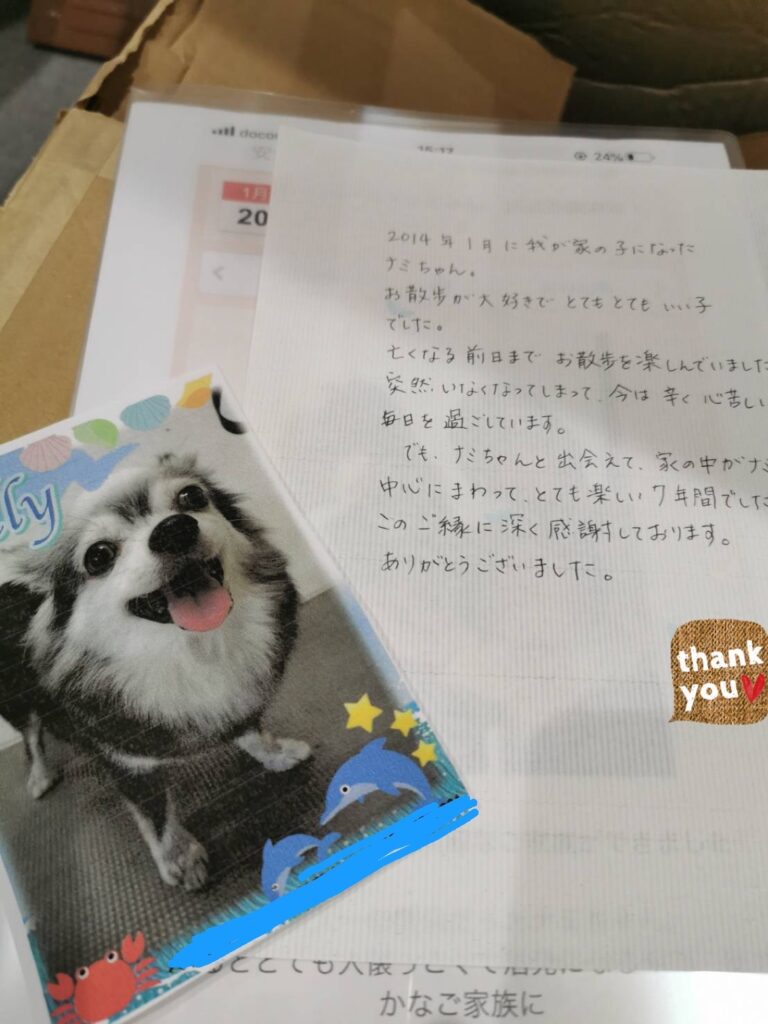 docomo
15:17
24%
1月
20
2014年1月に我が家の子になった
ナミちゃん。
お散歩が大好きで とてもとても いい子
でした。
亡くなる前日まで お散歩を楽しんでいました
突然いなくなってしまって、今は辛く心苦しい
毎日を過ごしています。
でも、ナミちゃんと出会えて、家の中がナミ
中心にまわって、とても楽しい7年間でした
このご縁に深く感謝しております。
ありがとうございました。
thank
you
ly
かなご家族に